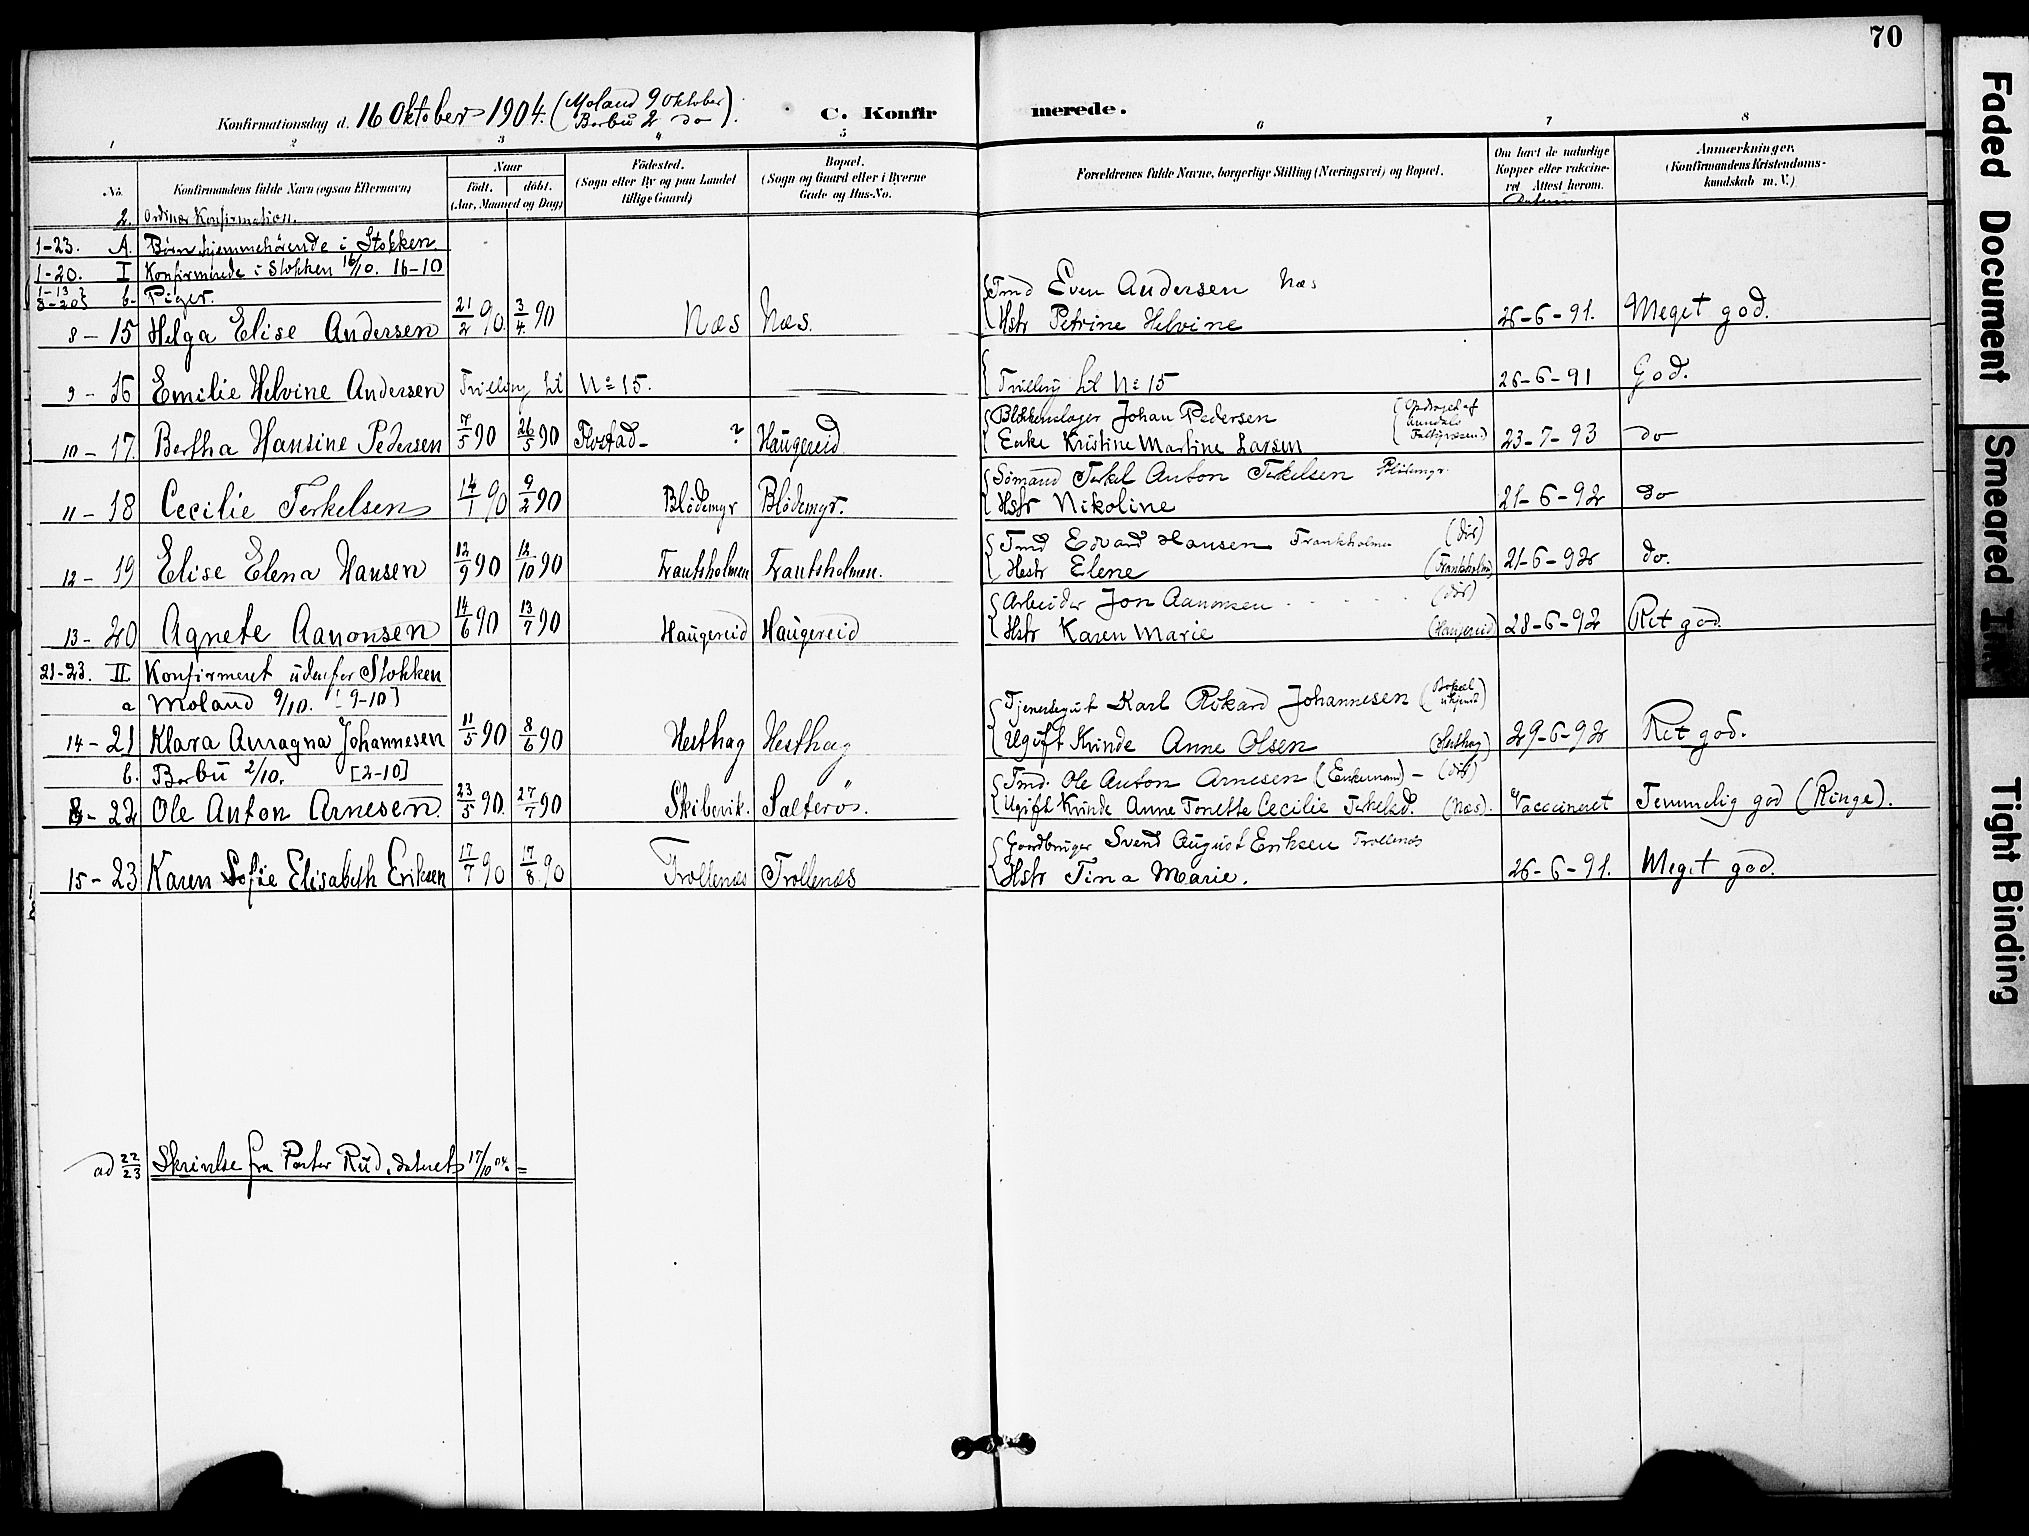 70
Konfirmationsdag d. 16 Oktober 1904. (Moland 9 Oktober
Barbu 2 do).
C. Konfirmerede.
1 2 3 4 5 6 7 8
No. Konfirmandens fulde Navn (ogsaa Efternavn) Naar født. døbt. (Aar, Maaned og Dag) Fødested. (Sogn eller By og paa Landet tillige Gaard) Bopæl. (Sogn og Gaard eller i Byerne Gade og Hus-No. Forældrenes fulde Navne, borgerlige Stilling (Næringsvei) og Bopæl. Om havt de naturlige Kopper eller vakcineret Attest herom. Datum Anmærkninger. (Konfirmandens Kristendomskundskab m. V.)
2. Ordinær Konfirmation.
1-23. A. Børn hjemmehörende i Stokken
1-20. I Konfirmerede i Stokken 16/10. 16-10
1-13
8-20} b. Piger.
8 - 15 Helga Elise Andersen 21/2 90. 3/4 90 Næs Næs. Tmd Even Andersen Næs
Hstr Petrine Helvine 26-6-91. Meget god.
9 - 16 Emilie Helvine Andersen Tvilling til No 15. Tvilling til No 15 26-6-91 God.
10 - 17. Bertha Hansine Pedersen 7/5 90 26/5 90 Flostad - ? Haugereid Blokkemager Johan Pedersen
Enke Kristine Martine Larsen (Opdraget af Arendals Fattigvæsen.) 23-7-93 do
11 - 18 Cecilie Terkelsen 14/1 90 9/2 90 Blödemyr Blödemyr. Sömand Terkel Anton Terkelsen Blödemyr.
Hstr Nikoline 21-6-92 do
12 - 19 Elise Elena Hansen 12/9 90 12/10 90 Frantsholmen Frantsholmen. Tmd Edvard Hansen Frantsholmen (död)
Hstr Elene (Frantsholmen) 21-6-92 do.
13 - 20 Agnete Aanonsen 14/6 90 13/7 90 Haugereid Haugereid Arbeider Jon Aanonsen (död)
Hstr Karen Marie (Haugereid) 28-6-92 Ret god.
21-23. II Konfirmeret udenfor Stokken
a Moland 9/10. [9-10]
14 - 21 Klara Anragna Johannesen 11/5 90 8/6 90 Hesthag Hesthag Tjenestegut Karl Rikard Johannesen (Bopæl ukjendt)
Ugift Kvinde Anne Olsen (Hesthag) 29-6-92 Ret god.
b. Barbu 2/10. [2-10]
8 - 22 Ole Anton Arnesen. 23/5 90. 27/7 90 Skibevik. Salterös. Tmd. Ole Anton Arnesen (Enkemand) - (död)
Ugift Kvinde Anne Tonette Cecilie Terkelsd. (Næs). Vaccineret Temmelig god (Ringe).
15 - 23 Karen Sofie Elisabeth Eriksen 17/7 90 17/8 90 Trollenæs Trollenæs Gaardbruger Svend August Eriksen Trollenæs
Hstr Tina Marie. 26-6-91. Meget god.
ad 22/23 Skrivelse fra Pastor Rud, dateret 17/10 04. =
Faded Document
Smeared Ink
Tight Binding